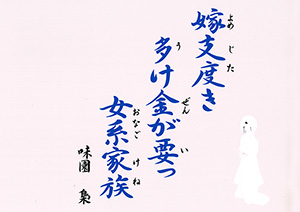 嫁支度き
よめじた
多け金が要っ
う ぜん い
女系家族
おなご けね
味園 梟